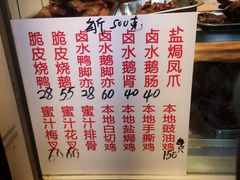 500克
脆皮烧鸭
28
脆皮烧鹅
55
卤水鸭脚亦
28
卤水鹅脚亦
60
卤水鹅肾
40
卤水鹅肠
40
盐焗凤爪
蜜汁梅叉
蜜汁花叉
蜜汁排骨
本地白切鸡
本地盐焗鸡
本地手撕鸡
本地豉油鸡
150